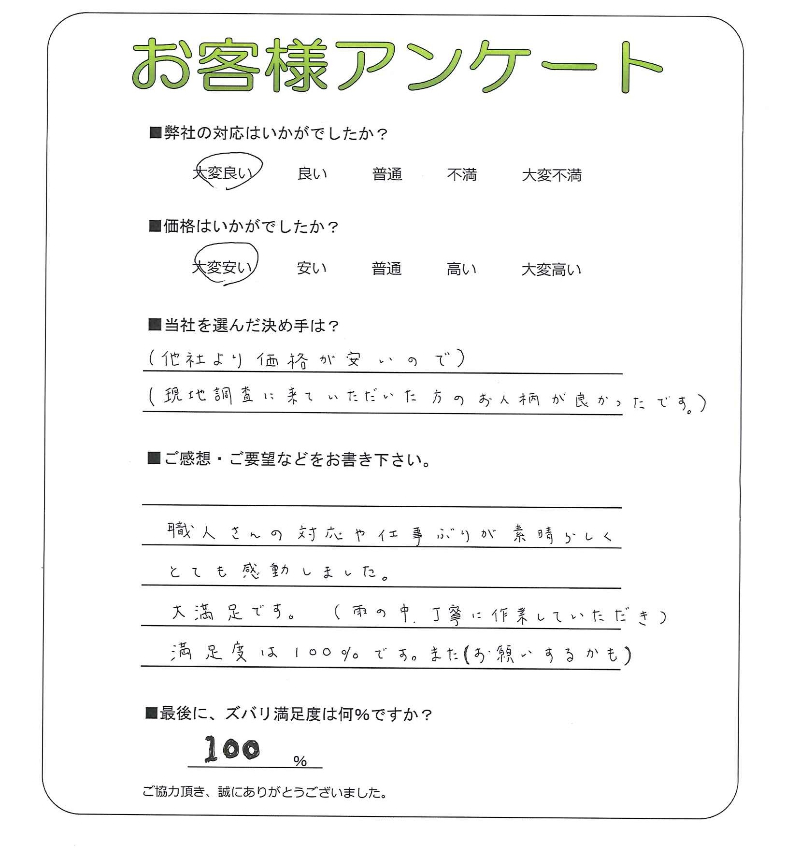 お客様アンケート
■弊社の対応はいかがでしたか？
大変良い 良い 普通 不満 大変不満
■価格はいかがでしたか？
大変安い 安い 普通 高い 大変高い
■当社を選んだ決め手は？
(他社より価格が安いので)
(現地調査に来ていただいた方のお人柄が良かったです。)
■ご感想・ご要望などをお書き下さい。
職人さんの対応や仕事ぶりが素晴らしく
とても感動しました。
大満足です。 (雨の中、丁寧に作業していただき)
満足度は100%です。また(お願いするかも)
■最後に、ズバリ満足度は何%ですか？
100 %
ご協力頂き、誠にありがとうございました。